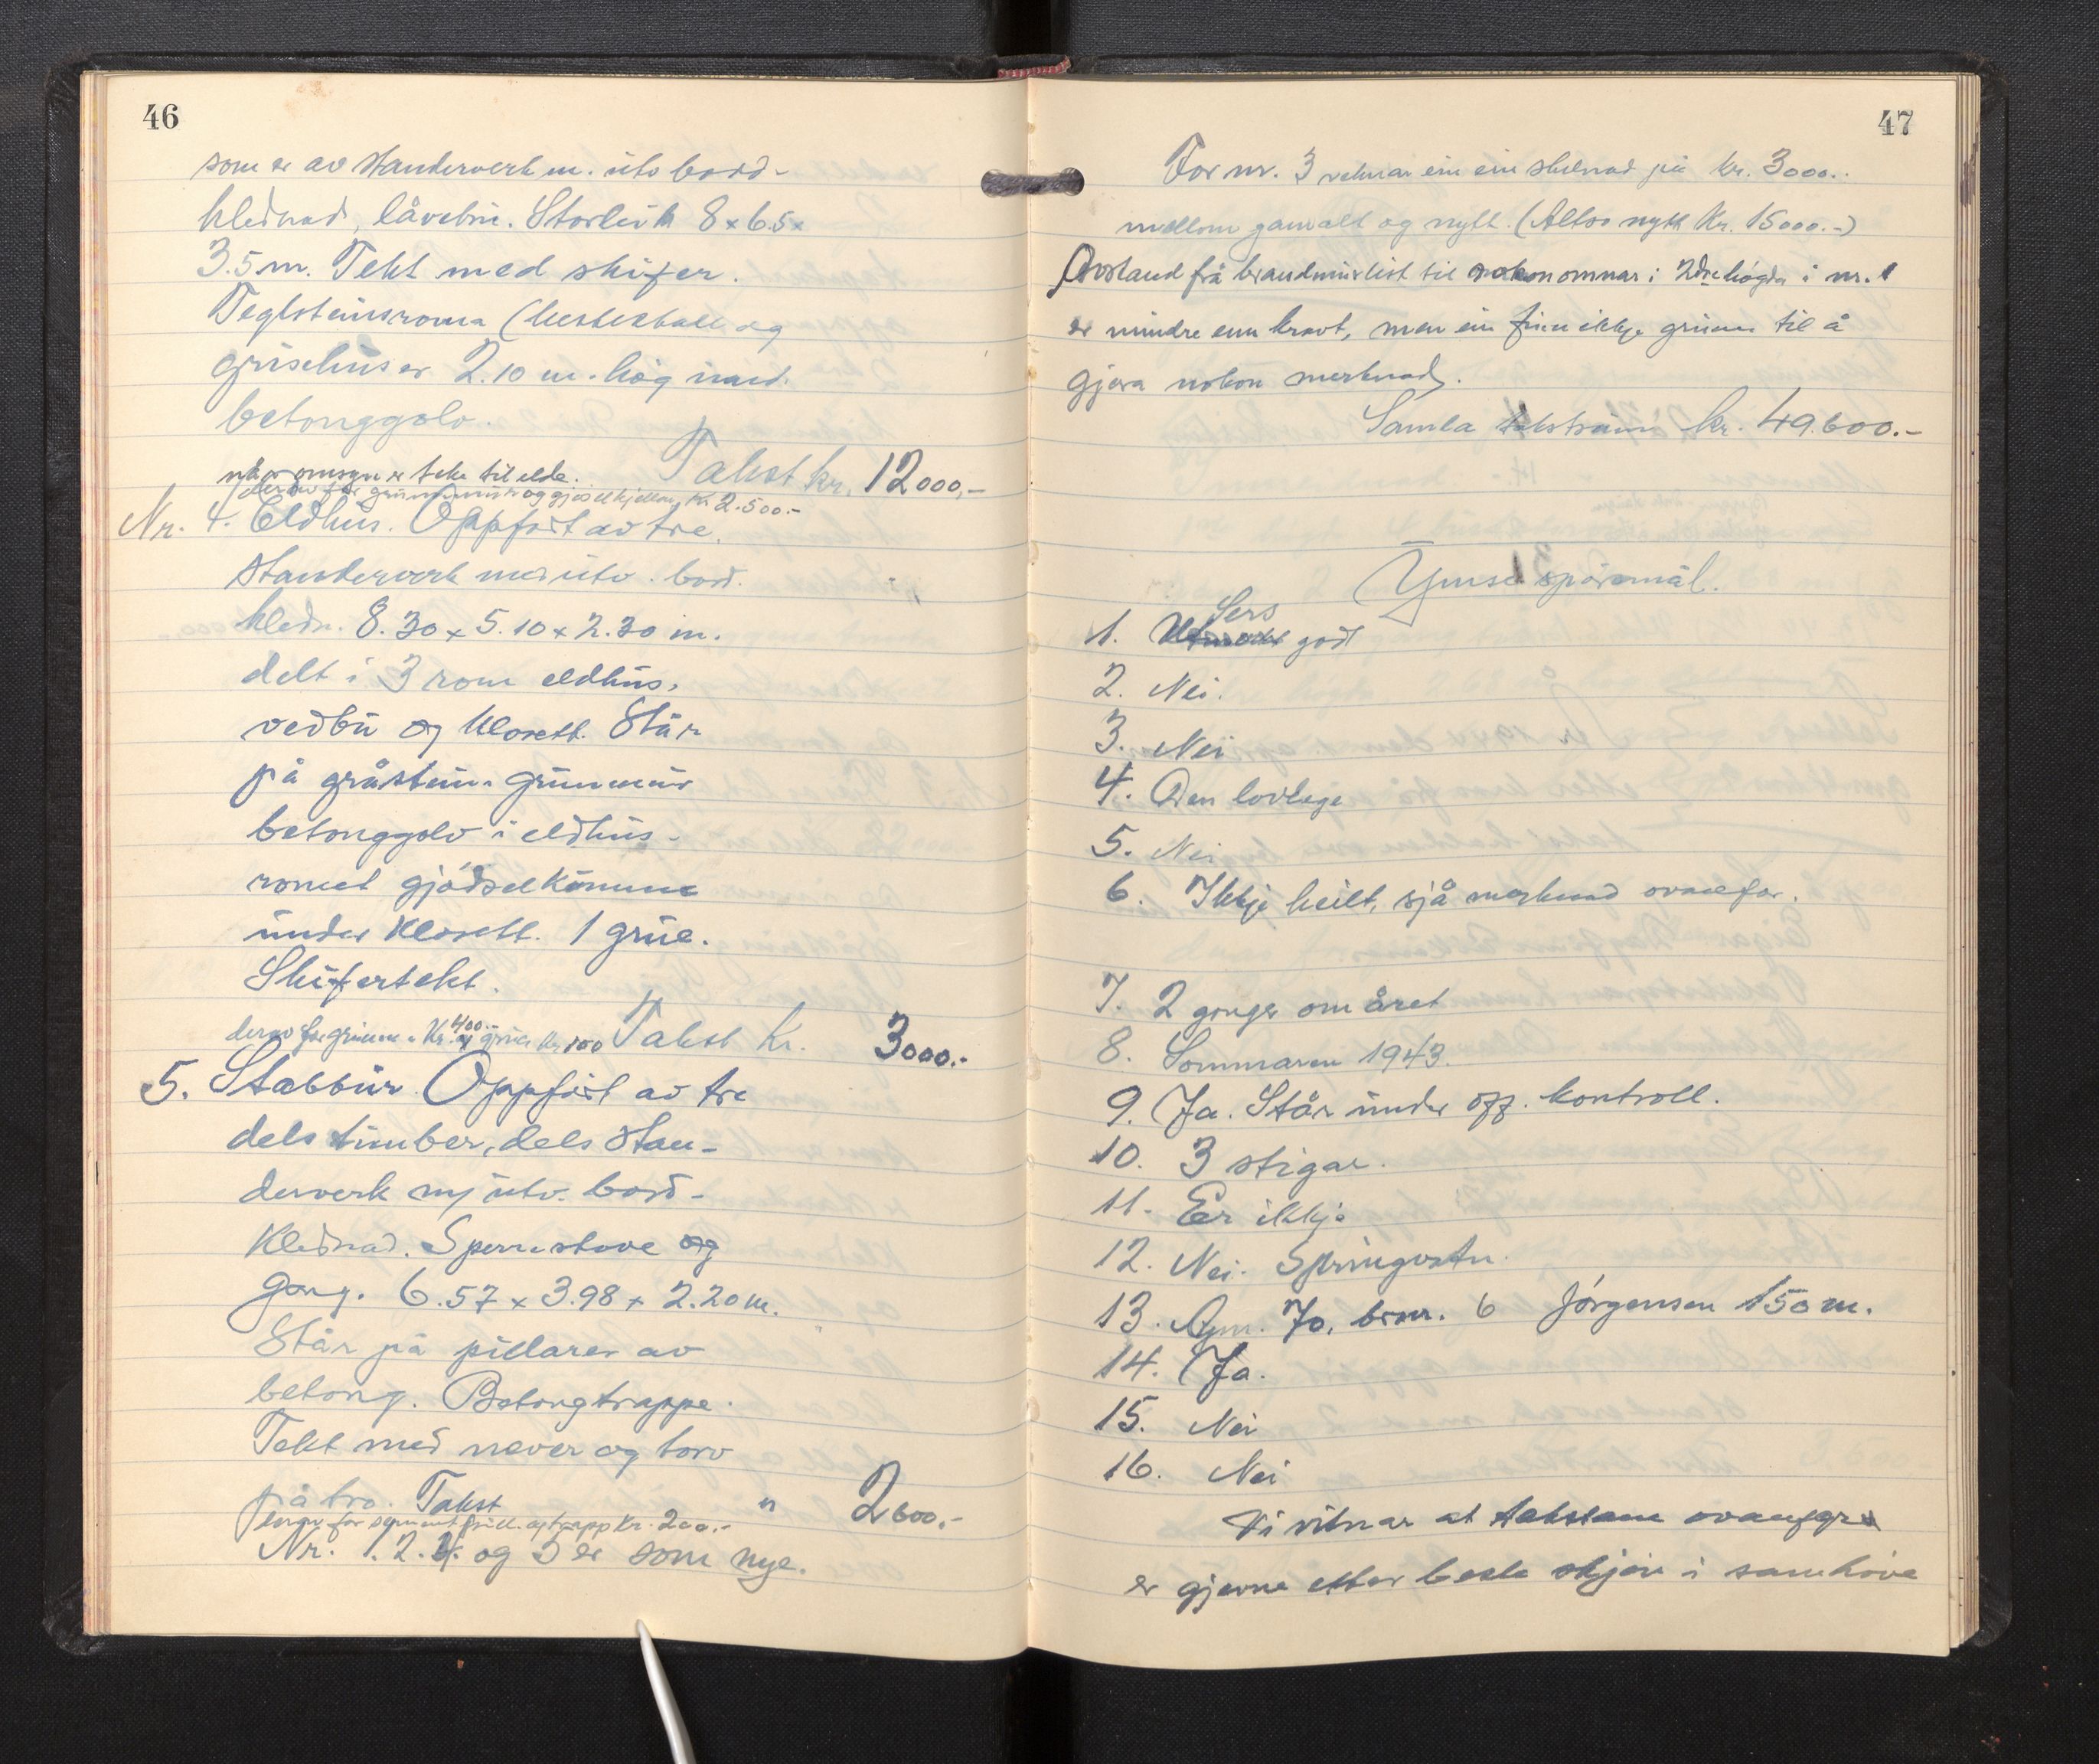 46
som er av standerverk m. utv bord-
klednad, låvebru. Storleik 8 x 6.5 x
3.5 m. Tekt med skifer.
Teglsteinsroma (hestestall og
grisehus er 2.10 m. høg innv.
betonggolv.
når omsyn er teke til elde. Takst kr. 12000,-
derav for grunnmur og gjødselkjellar Kr. 2.500.-
Nr. 4. Eldhus. Oppført av tre,
standerverk med utv. bord.
kledn. 8.30 x 5.10 x 2.30 m.
delt i 3 rom eldhus,
vedbu og klosett. Står
på gråstein. grunnmur
betonggolv i eldhus-
romet gjødselkumme
under klosett. 1 grue.
Skifertekt.
derav for grunnm. Kr. 400.- og grue kr 100 Takst Kr. 3000.-
5. Stabbur. Oppført av tre
dels timber, dels stan-
derverk m/ utv. bord-
klednad. Sperrestove og
gang. 6.57 x 3.98 x 2.20 m.
Står på pillarer av
betong. Betongtrappe.
Tekt med never og torv
på tro. Takst " 2600.-
derav for sement pill. og trapp Kr. 200.-
Nr. 1. 2. 4. og 5 er som nye.
47
For nr. 3 reknar ein ein skilnad på kr. 3000.-
mellom gamalt og nytt. (Altso nytt Kr. 15000.-)
Avstand frå brandmurlist til sokon omnar i 2dre høgda i nr. 1
er mindre enn kravt, men ein finn ikkje grunn til å
gjera nokon merknad.
Samla takstsum kr. 49.600.-
Ymse spørsmål.
Sers
1. godt
2. Nei.
3. Nei
4. Den lovlege
5. Nei
6. Ikkje heilt, sjå merknad ovanfor.
7. 2 gonger om året
8. Sommaren 1943.
9. Ja. Står under off. kontroll.
10. 3 stigar.
11. Er ikkje
12. Nei. Springvatn.
13. Gnr. 70, brnr. 6 Jørgensen 150 m.
14. Ja.
15. Nei
16. Nei
Vi vitnar at takstane ovanfor
er gjevne etter beste skjøn i samhøve